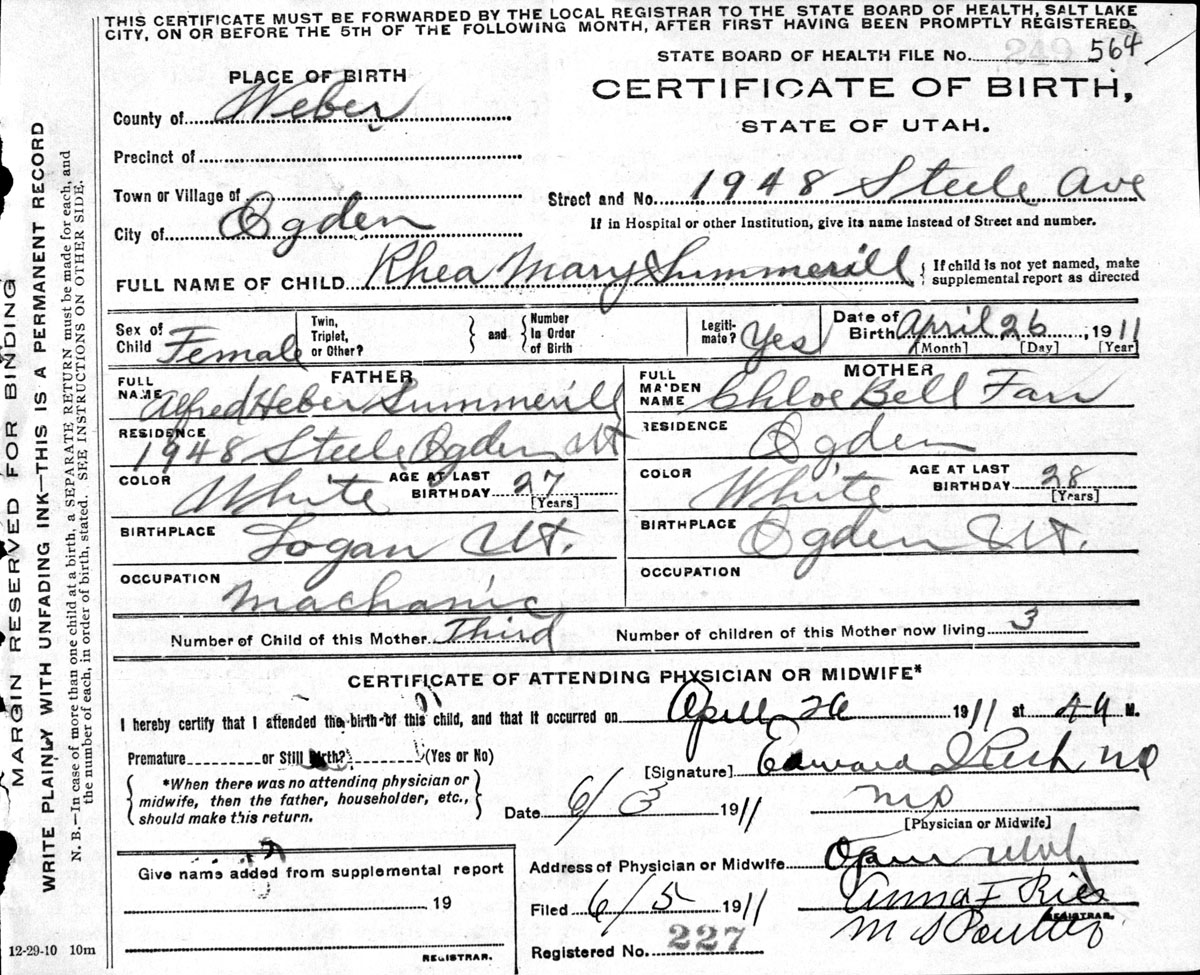 THIS CERTIFICATE MUST BE FORWARDED BY THE LOCAL REGISTRAR TO THE STATE BOARD OF HEALTH, SALT LAKE
CITY, ON OR BEFORE THE 5TH OF THE FOLLOWING MONTH, AFTER FIRST HAVING BEEN PROMPTLY REGISTERED.
STATE BOARD OF HEALTH FILE No. 249 564
PLACE OF BIRTH
CERTIFICATE OF BIRTH,
STATE OF UTAH.
County of Weber
Precinct of
Town or Village of
Street and No. 1948 Steele Ave
City of Ogden
If in Hospital or other Institution, give its name instead of Street and number.
FULL NAME OF CHILD Rhea Mary Summerill
{ If child is not yet named, make
supplemental report as directed
Sex of Child Female
Twin, Triplet, or Other?
} and { Number In Order of Birth
Legiti-mate? Yes
Date of Birth April 26, 1911
[Month] [Day] [Year]
FATHER
FULL NAME Alfred Heber Summerill
RESIDENCE 1948 Steele Ogden Ut
COLOR White
AGE AT LAST BIRTHDAY 27
[Years]
BIRTHPLACE Logan Ut.
OCCUPATION Machanic
MOTHER
FULL MAIDEN NAME Chloe Bell Farr
RESIDENCE Ogden
COLOR White
AGE AT LAST BIRTHDAY 28
[Years]
BIRTHPLACE Ogden Ut.
OCCUPATION
Number of Child of this Mother Third
Number of children of this Mother now living 3
CERTIFICATE OF ATTENDING PHYSICIAN OR MIDWIFE*
I hereby certify that I attended the birth of this child, and that it occurred on April 26 1911 at M.
Premature or Still Birth? (Yes or No)
{ *When there was no attending physician or
midwife, then the father, householder, etc.,
should make this return. }
[Signature] Edward I Rich MD
Date 6/3 1911
MD
[Physician or Midwife]
Give name added from supplemental report
19
REGISTRAR.
Address of Physician or Midwife Ogden Utah
Filed 6/5 1911
Anna F Ries
REGISTRAR.
Registered No. 227
12-29-10 10m
MARGIN RESERVED FOR BINDING
WRITE PLAINLY WITH UNFADING INK—THIS IS A PERMANENT RECORD
N. B.—In case of more than one child at a birth, a SEPARATE RETURN must be made for each, and
the number of each, in order of birth, stated. SEE INSTRUCTIONS ON OTHER SIDE.